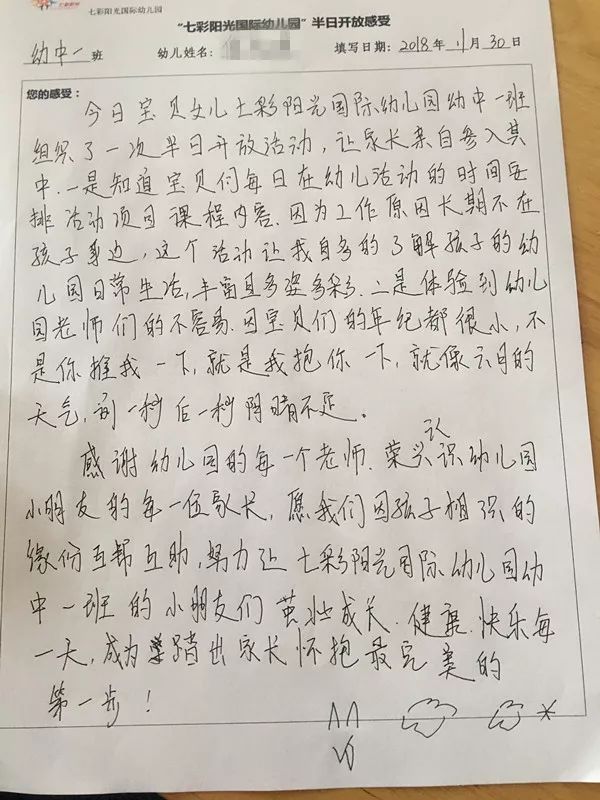 七彩阳光国际幼儿园
“七彩阳光国际幼儿园”半日开放感受
幼中一班 幼儿姓名： 填写日期：2018年11月30日
您的感受：
今日宝贝女儿七彩阳光国际幼儿园幼中一班
组织了一次半日开放活动，让家长亲自参入其
中.一是知道宝贝们每日在幼儿活动的时间安
排活动项目课程内容.因为工作原因长期不在
孩子身边，这个活动让我自多的了解孩子的幼
儿园日常生活,丰富且多姿多彩.二是体验到幼儿
园老师们的不容易.因宝贝们的年纪都很小,不
是你推我一下,就是我抱你一下,就像六月的
天气,前一秒后一秒阴晴不定。
感谢幼儿园的每一个老师.荣兴认识幼儿园
小朋友的每一位家长,愿我们因孩子相识的
缘份互帮互助,努力让七彩阳光国际幼儿园幼
中一班的小朋友们茁壮成长.健康.快乐每
一天,成为踏出家长怀抱最完美的
第一步!